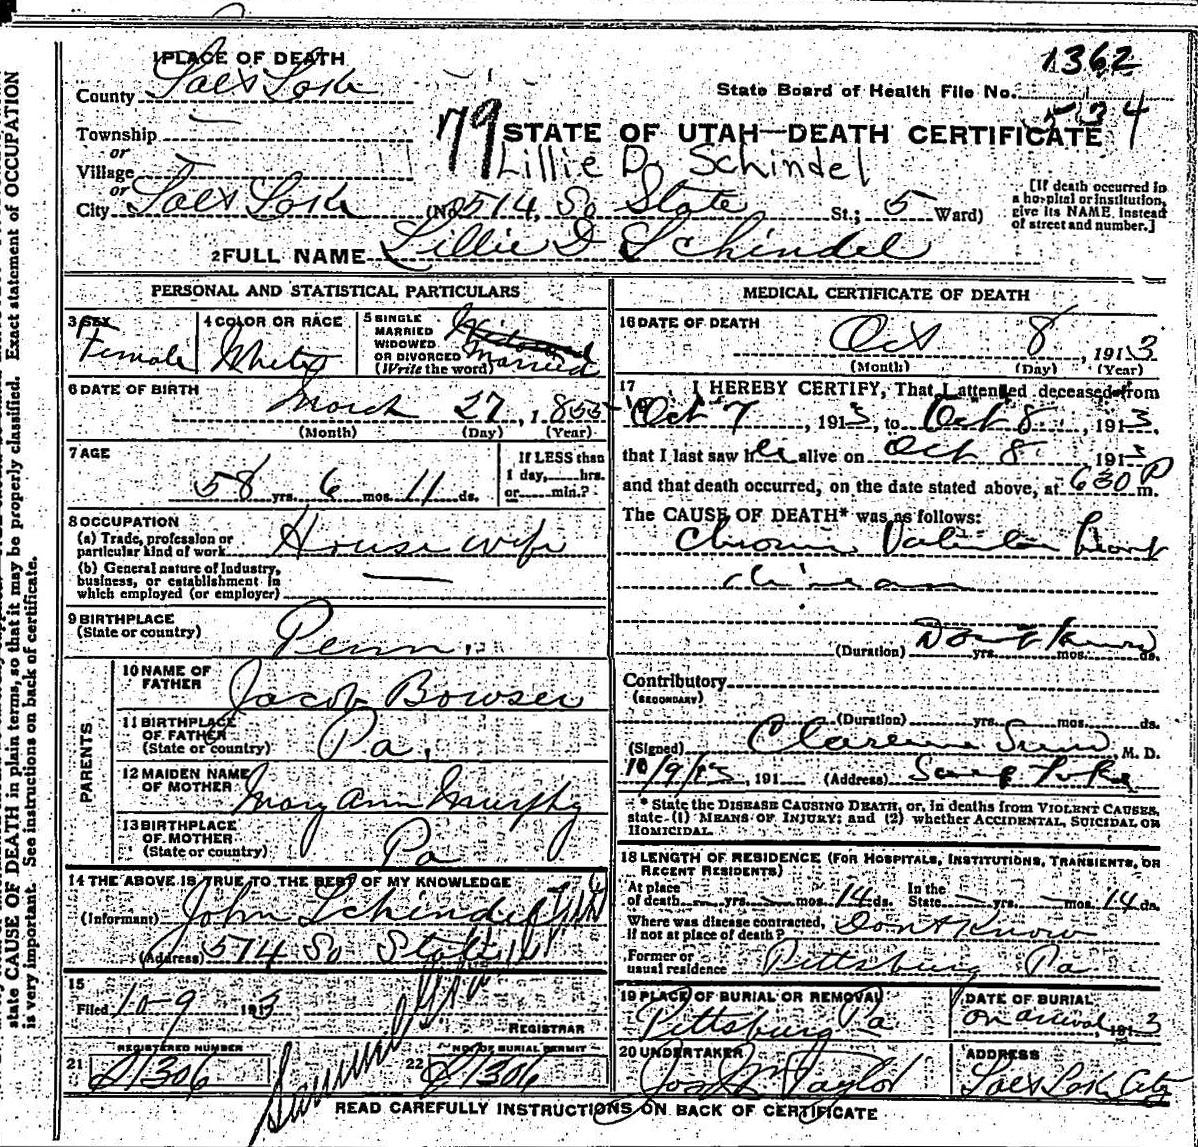 1 PLACE OF DEATH
County Salt Lake
Township —
or
Village —
or
City Salt Lake
1362
State Board of Health File No. 534
79 STATE OF UTAH—DEATH CERTIFICATE
Lillie D. Schindel
(No. 514, So State St.; 5 Ward)
[If death occurred in
a hospital or institution,
give its NAME instead
of street and number.]
2 FULL NAME Lillie D Schindel
PERSONAL AND STATISTICAL PARTICULARS
3 SEX
Female
4 COLOR OR RACE
White
5 SINGLE
MARRIED
WIDOWED
OR DIVORCED
(Write the word)
Widowed
Married
6 DATE OF BIRTH
March 27, 1855
(Month) (Day) (Year)
7 AGE
58 yrs. 6 mos. 11 ds.
If LESS than
1 day, hrs.
or min.?
8 OCCUPATION
(a) Trade, profession or
particular kind of work House wife
(b) General nature of Industry,
business, or establishment in
which employed (or employer) —
9 BIRTHPLACE
(State or country) Penn.
PARENTS
10 NAME OF
FATHER Jacob Bowser
11 BIRTHPLACE
OF FATHER
(State or country) Pa.
12 MAIDEN NAME
OF MOTHER Mary Ann Murphy
13 BIRTHPLACE
OF MOTHER
(State or country) Pa
14 THE ABOVE IS TRUE TO THE BEST OF MY KNOWLEDGE
(Informant) John Schindel
(Address) 574 So State
15
Filed 10-9 1913
REGISTRAR
REGISTERED NUMBER
21 1306
NO. OF BURIAL PERMIT
22 1306
MEDICAL CERTIFICATE OF DEATH
16 DATE OF DEATH
Oct 8, 1913
(Month) (Day) (Year)
17 I HEREBY CERTIFY, That I attended deceased from
Oct 7, 1913, to Oct 8, 1913,
that I last saw her alive on Oct 8 1913
and that death occurred, on the date stated above, at 630 P m.
The CAUSE OF DEATH* was as follows:
Chronic Valvular heart
disease
(Duration) Dont Know yrs. mos. ds.
Contributory
(SECONDARY)
(Duration) yrs. mos. ds.
(Signed) Clarence M. D.
10/9/13, 191 (Address) Salt Lake
* State the DISEASE CAUSING DEATH, or, in deaths from VIOLENT CAUSES,
state (1) MEANS OF INJURY; and (2) whether ACCIDENTAL, SUICIDAL OR
HOMICIDAL.
18 LENGTH OF RESIDENCE (FOR HOSPITALS, INSTITUTIONS, TRANSIENTS, OR
RECENT RESIDENTS)
At place
of death — yrs. — mos. 14 ds. In the
State — yrs. — mos. 14 ds.
Where was disease contracted,
if not at place of death? Dont Know
Former or
usual residence Pittsburg Pa
19 PLACE OF BURIAL OR REMOVAL
Pittsburg Pa
DATE OF BURIAL
On arrival 1913
20 UNDERTAKER
Jos Wm Taylor
ADDRESS
Salt Lake City
READ CAREFULLY INSTRUCTIONS ON BACK OF CERTIFICATE
state CAUSE OF DEATH in plain terms, so that it may be properly classified. Exact statement of OCCUPATION
is very important. See instructions on back of certificate.